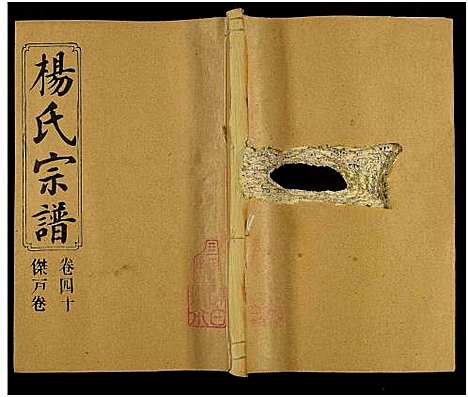 楊氏宗譜
卷四十
傑戶卷